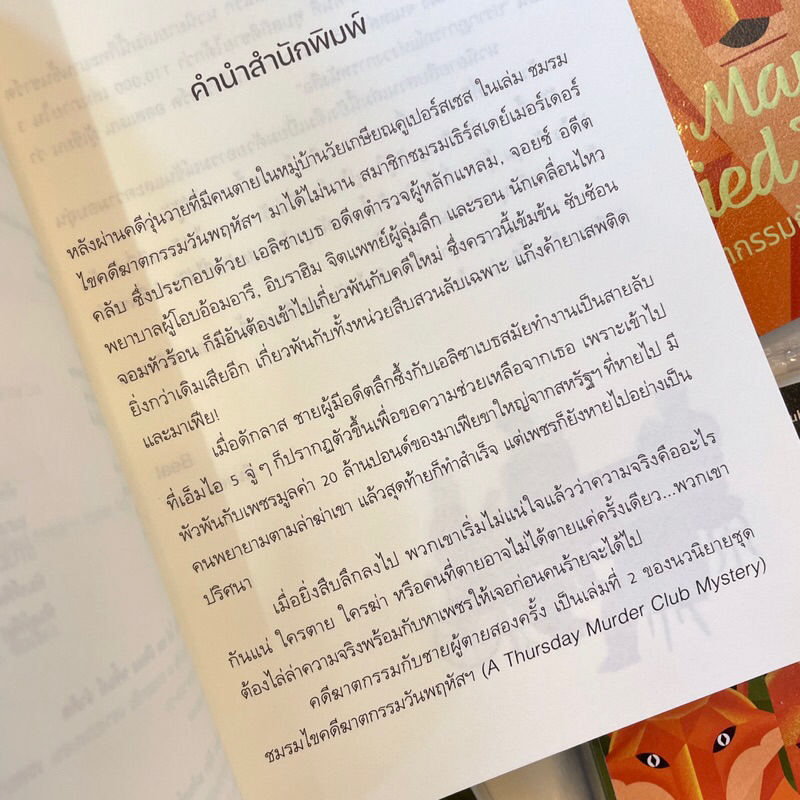 คำนำสำนักพิมพ์
หลังผ่านคดีวุ่นวายที่มีคนตายในหมู่บ้านวัยเกษียณคูเปอร์สเชส ในเล่ม ชมรม
ไขคดีฆาตกรรมวันพฤหัสฯ มาได้ไม่นาน สมาชิกชมรมเธิร์สเดย์เมอร์เดอร์
คลับ ซึ่งประกอบด้วย เอลิซาเบธ อดีตตำรวจผู้หลักแหลม, จอยซ์ อดีต
พยาบาลผู้โอบอ้อมอารี, อิบราฮิม จิตแพทย์ผู้ลุ่มลึก และรอน นักเคลื่อนไหว
จอมหัวร้อน ก็มีอันต้องเข้าไปเกี่ยวพันกับคดีใหม่ ซึ่งคราวนี้เข้มข้น ซับซ้อน
ยิ่งกว่าเดิมเสียอีก เกี่ยวพันกับทั้งหน่วยสืบสวนลับเฉพาะ แก๊งค้ายาเสพติด
และมาเฟีย!
เมื่อดักลาส ชายผู้มีอดีตลึกซึ้งกับเอลิซาเบธสมัยทำงานเป็นสายลับ
ที่เอ็มไอ 5 จู่ๆ ก็ปรากฏตัวขึ้นเพื่อขอความช่วยเหลือจากเธอ เพราะเข้าไป
พัวพันกับเพชรมูลค่า 20 ล้านปอนด์ของมาเฟียขาใหญ่จากสหรัฐฯ ที่หายไป มี
คนพยายามตามล่าฆ่าเขา แล้วสุดท้ายก็ทำสำเร็จ แต่เพชรก็ยังหายไปอย่างเป็น
ปริศนา
เมื่อยิ่งสืบลึกลงไป พวกเขาเริ่มไม่แน่ใจแล้วว่าความจริงคืออะไร
กันแน่ ใครตาย ใครฆ่า หรือคนที่ตายอาจไม่ได้ตายแค่ครั้งเดียว...พวกเขา
ต้องไล่ล่าความจริงพร้อมกับหาเพชรให้เจอก่อนคนร้ายจะได้ไป
คดีฆาตกรรมกับชายผู้ตายสองครั้ง เป็นเล่มที่ 2 ของนวนิยายชุด
ชมรมไขคดีฆาตกรรมวันพฤหัสฯ (A Thursday Murder Club Mystery)